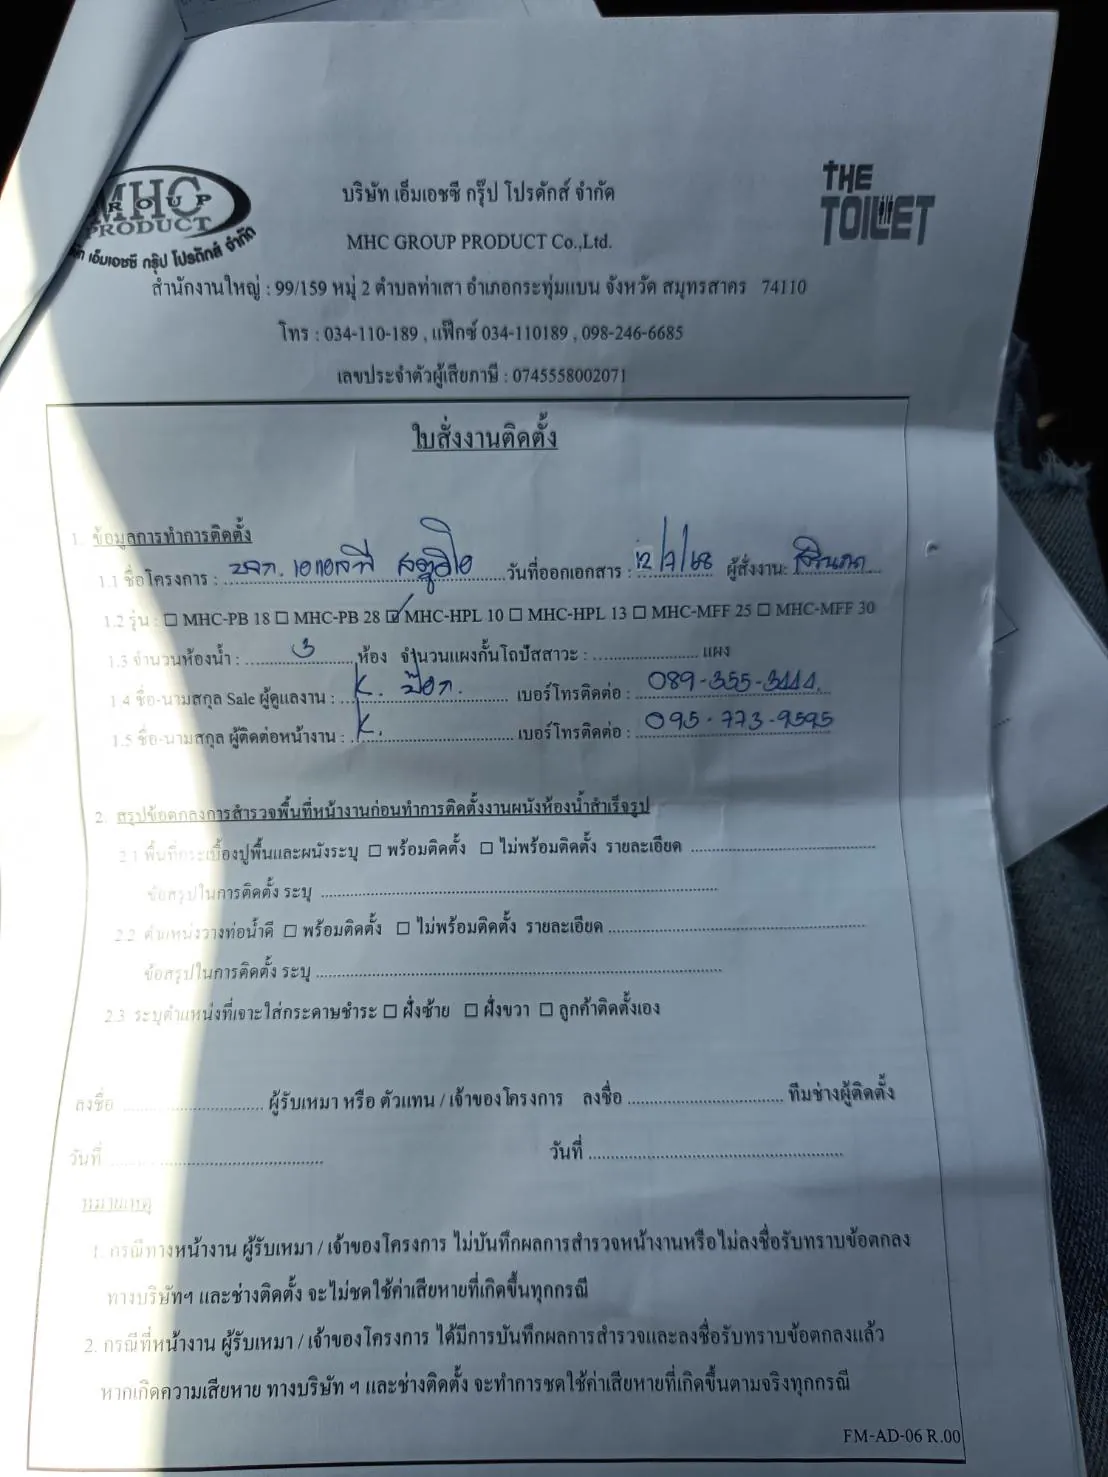 MHC
GROUP
PRODUCT
เอ็มเอชซี กรุ๊ป โปรดักส์ จำกัด
THE
TOILET
บริษัท เอ็มเอชซี กรุ๊ป โปรดักส์ จำกัด
MHC GROUP PRODUCT Co.,Ltd.
สำนักงานใหญ่ : 99/159 หมู่ 2 ตำบลท่าเสา อำเภอกระทุ่มแบน จังหวัด สมุทรสาคร 74110
โทร : 034-110-189 , แฟ็กซ์ 034-110189 , 098-246-6685
เลขประจำตัวผู้เสียภาษี : 0745558002071
ใบสั่งงานติดตั้ง
1. ข้อมูลการทำการติดตั้ง
1.1 ชื่อโครงการ : หจก. เอแอลพี สตูดิโอ วันที่ออกเอกสาร : 12/7/68 ผู้สั่งงาน:
1.2 รุ่น : ☐ MHC-PB 18 ☐ MHC-PB 28 ☑ MHC-HPL 10 ☐ MHC-HPL 13 ☐ MHC-MFF 25 ☐ MHC-MFF 30
1.3 จำนวนห้องน้ำ : 3 ห้อง จำนวนแผงกั้นโถปัสสาวะ : .......... แผง
1.4 ชื่อ-นามสกุล Sale ผู้ดูแลงาน : K. ป๊อก. เบอร์โทรติดต่อ : 089-355-3444.
1.5 ชื่อ-นามสกุล ผู้ติดต่อหน้างาน : K. เบอร์โทรติดต่อ : 095-773-9595
2. สรุปข้อตกลงการสำรวจพื้นที่หน้างานก่อนทำการติดตั้งงานผนังห้องน้ำสำเร็จรูป
2.1 พื้นที่กระเบื้องปูพื้นและผนังระบุ ☐ พร้อมติดตั้ง ☐ ไม่พร้อมติดตั้ง รายละเอียด ..........
ข้อสรุปในการติดตั้ง ระบุ ..........
2.2 ตำแหน่งวางท่อน้ำดี ☐ พร้อมติดตั้ง ☐ ไม่พร้อมติดตั้ง รายละเอียด ..........
ข้อสรุปในการติดตั้ง ระบุ ..........
2.3 ระบุตำแหน่งที่เจาะใส่กระดาษชำระ ☐ ฝั่งซ้าย ☐ ฝั่งขวา ☐ ลูกค้าติดตั้งเอง
ลงชื่อ .......... ผู้รับเหมา หรือ ตัวแทน / เจ้าของโครงการ ลงชื่อ .......... ทีมช่างผู้ติดตั้ง
วันที่ .......... วันที่ ..........
หมายเหตุ
1. กรณีทางหน้างาน ผู้รับเหมา / เจ้าของโครงการ ไม่บันทึกผลการสำรวจหน้างานหรือไม่ลงชื่อรับทราบข้อตกลง
ทางบริษัทฯ และช่างติดตั้ง จะไม่ชดใช้ค่าเสียหายที่เกิดขึ้นทุกกรณี
2. กรณีที่หน้างาน ผู้รับเหมา / เจ้าของโครงการ ได้มีการบันทึกผลการสำรวจและลงชื่อรับทราบข้อตกลงแล้ว
หากเกิดความเสียหาย ทางบริษัท ฯ และช่างติดตั้ง จะทำการชดใช้ค่าเสียหายที่เกิดขึ้นตามจริงทุกกรณี
FM-AD-06 R.00